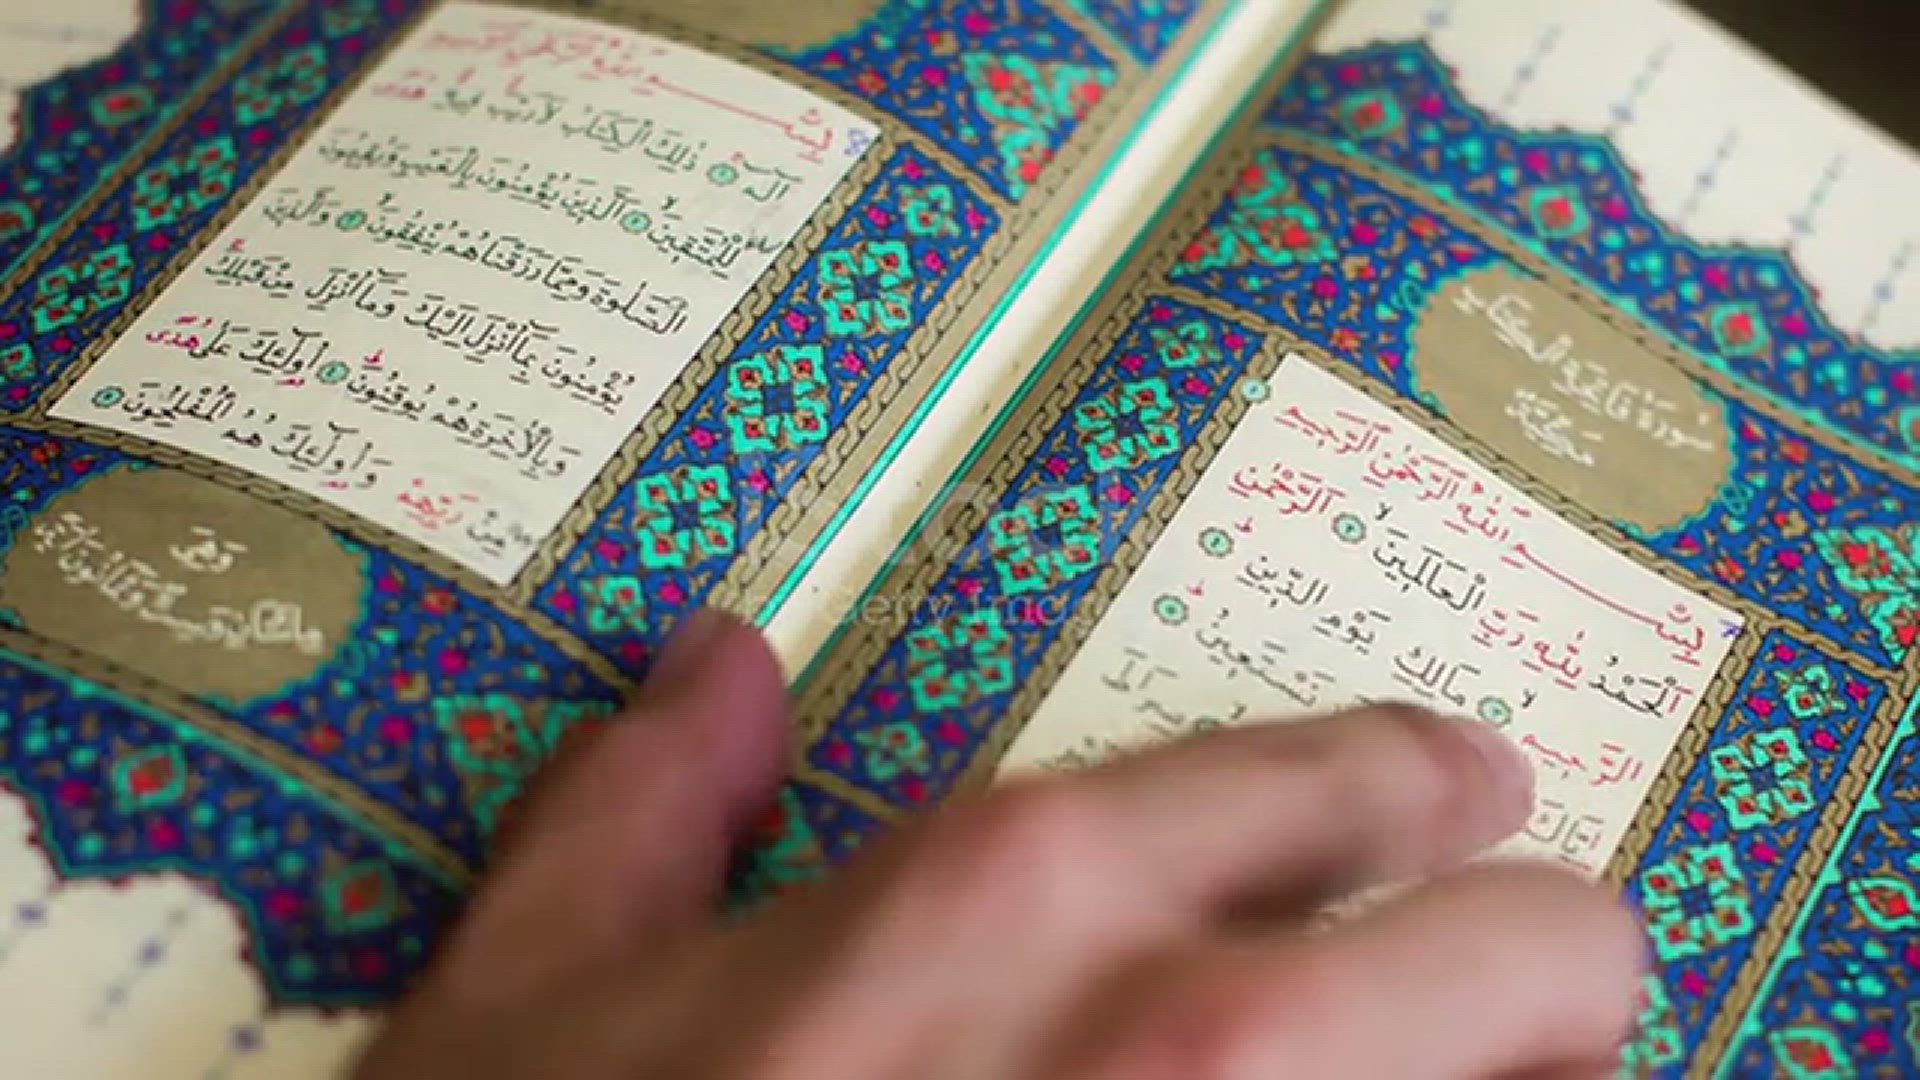 سُورَةُ فَاتِحَةِ الْكِتَابِ
مَكِّيَّةٌ
بِسْــــــمِ اللّٰهِ الرَّحْمٰنِ الرَّحِيمِ
اَلْحَمْدُ لِلّٰهِ رَبِّ الْعَالَمِينَ ٢ اَلرَّحْمٰنِ
الرَّحِيمِ ٣ مَالِكِ يَوْمِ الدِّينِ ٤
اِيَّاكَ نَسْتَعِينُ ٥
صِرَاطَ
بِسْــــــمِ اللّٰهِ الرَّحْمٰنِ الرَّحِيمِ
الٓمٓ ١ ذٰلِكَ الْكِتَابُ لَا رَيْبَ فِيهِ هُدًى
لِلْمُتَّقِينَ ٢ اَلَّذِينَ يُؤْمِنُونَ بِالْغَيْبِ وَيُقِيمُونَ
الصَّلٰوةَ وَمِمَّا رَزَقْنَاهُمْ يُنْفِقُونَ ٣ وَالَّذِينَ
يُؤْمِنُونَ بِمَا اُنْزِلَ اِلَيْكَ وَمَا اُنْزِلَ مِنْ قَبْلِكَ
وَبِالْاٰخِرَةِ هُمْ يُوقِنُونَ ٤ اُولٰئِكَ عَلٰى هُدًى
مِنْ رَبِّهِمْ وَاُولٰئِكَ هُمُ الْمُفْلِحُونَ ٥
وَهِيَ
Getty Ima